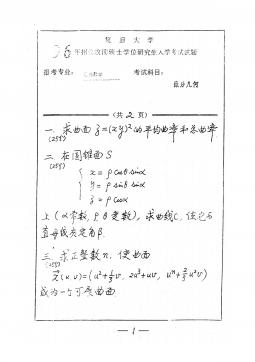 复旦大学
96年招收攻读硕士学位研究生入学考试试题
报考专业：
考试科目：
微分几何
(共2页)
一、求曲面 z=(xy)² 的平均曲率和高斯曲率
(25分)
二、在圆锥面S
(25分)
{ x = ρ cosθ sinα
y = ρ sinθ sinα
z = ρ cosα
上 (α常数, ρ θ变数), 求曲线C, 使它与
直母线夹定角β.
三、求正整数n, 使曲面
(25分)
成为一个可展曲面
— 1 —